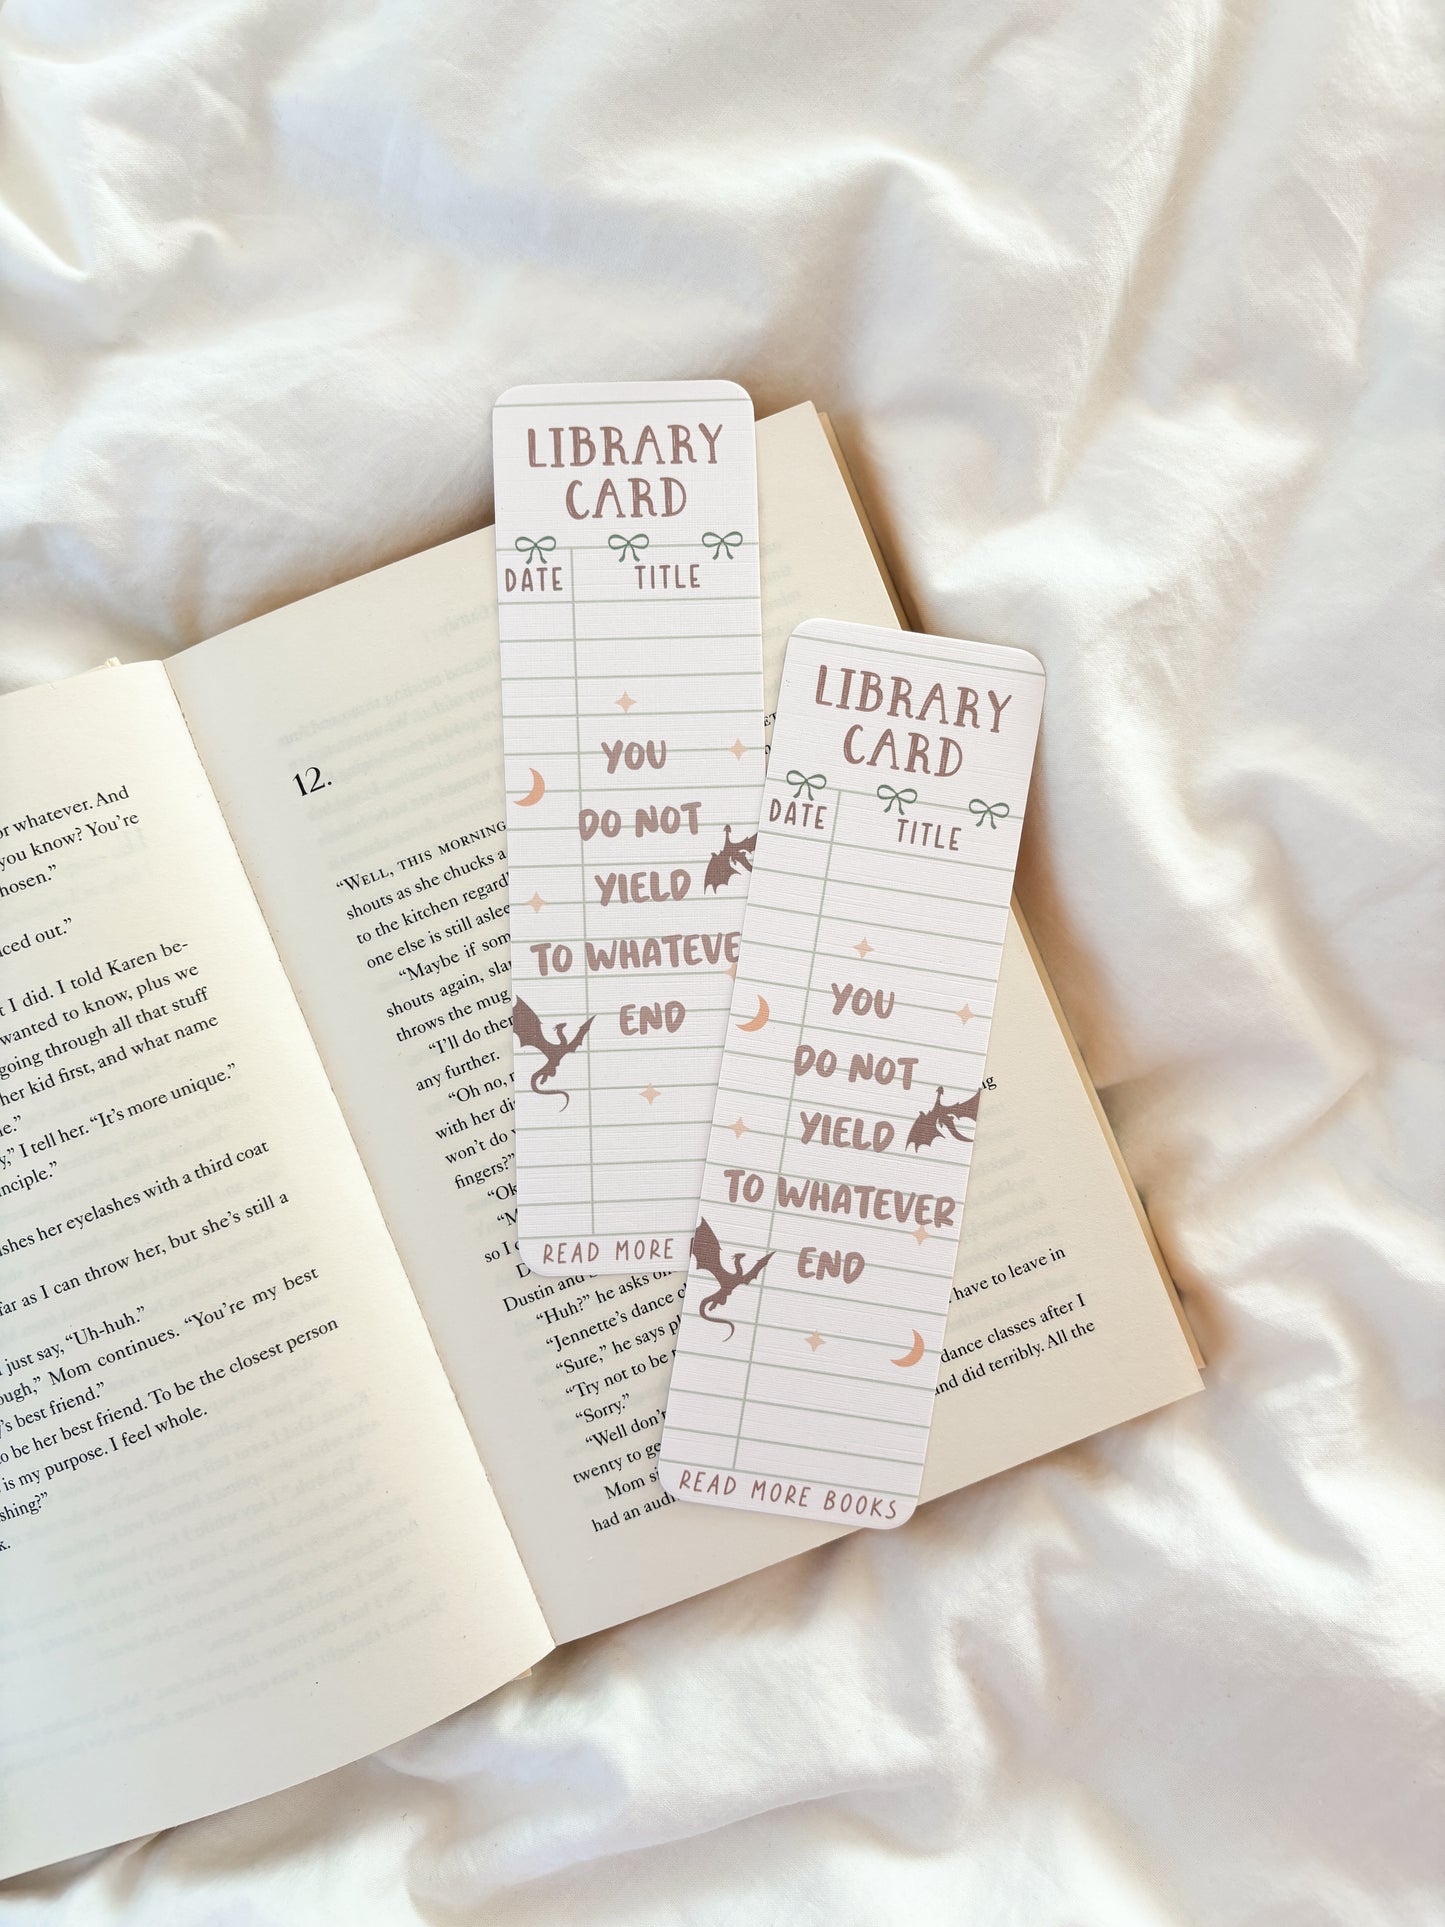 or whatever. And
you know? You're
hosen."
ced out."
t I did. I told Karen be-
wanted to know, plus we
going through all that stuff
her kid first, and what name
e."
y," I tell her. "It's more unique."
nciple."
shes her eyelashes with a third coat
far as I can throw her, but she's still a
just say, "Uh-huh."
ough," Mom continues. "You're my best
y's best friend."
o be her best friend. To be the closest person
is my purpose. I feel whole.
shing?"
k.
12.
"WELL, THIS MORNING
shouts as she chucks a
to the kitchen regard
one else is still aslee
"Maybe if som
shouts again, sla
throws the mug
"I'll do ther
any further.
"Oh no, r
with her di
won't do
fingers?"
"Ok
"M
so I
D
Dustin and
"Huh?" he asks on
"Jennette's dance c
"Sure," he says pl
"Try not to be
"Sorry."
"Well don't
twenty to ge
Mom si
had an audi
ng
have to leave in
dance classes after I
nd did terribly. All the
LIBRARY
CARD
DATE TITLE
YOU
DO NOT
YIELD
TO WHATEVE
END
READ MORE
LIBRARY
CARD
DATE TITLE
YOU
DO NOT
YIELD
TO WHATEVER
END
READ MORE BOOKS